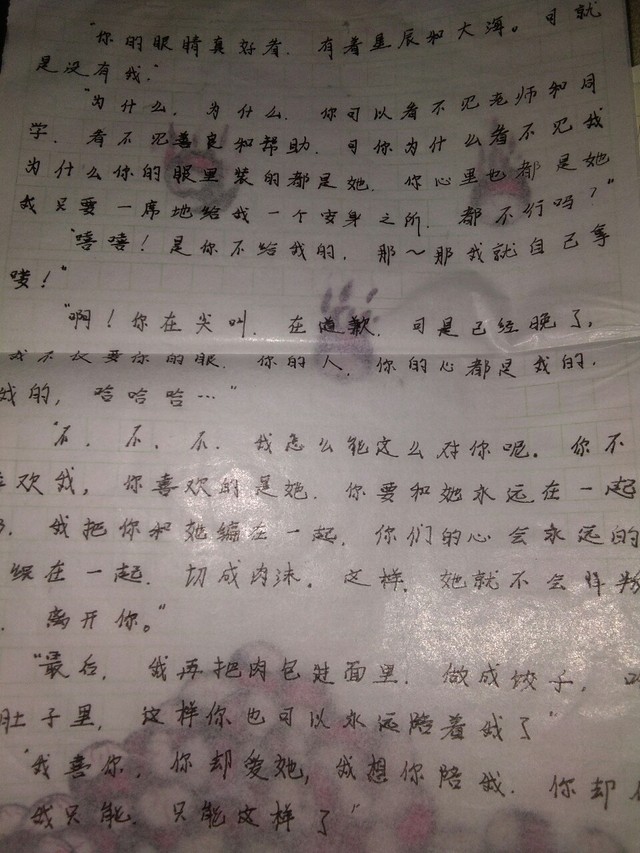 "你的眼睛真好看，有着星辰和大海。可就
是没有我."
"为什么，为什么，你可以看不见老师和同
学，看不见善良和帮助，可你为什么看不见我
为什么你的眼里装的都是她，你心里也都是她
我只要一席地给我一个安身之所，都不行吗？"
"嘻嘻！是你不给我的，那～那我就自己拿
喽！"
"啊！你在尖叫，在道歉，可是已经晚了，
我不仅要你的眼，你的人，你的心都是我的，
我的，哈哈哈…"
"不，不，不，我怎么能这么对你呢。你不
欢我，你喜欢的是她，你要和她永远在一起
我把你和她编在一起，你们的心会永远的
在一起，切成肉沫。这样，她就不会
离开你。"
"最后，我再把肉包进面里，做成饺子，
肚子里，这样你也可以永远陪着我了"
"我喜你，你却爱她，我想你陪我，你却
我只能，只能这样了"